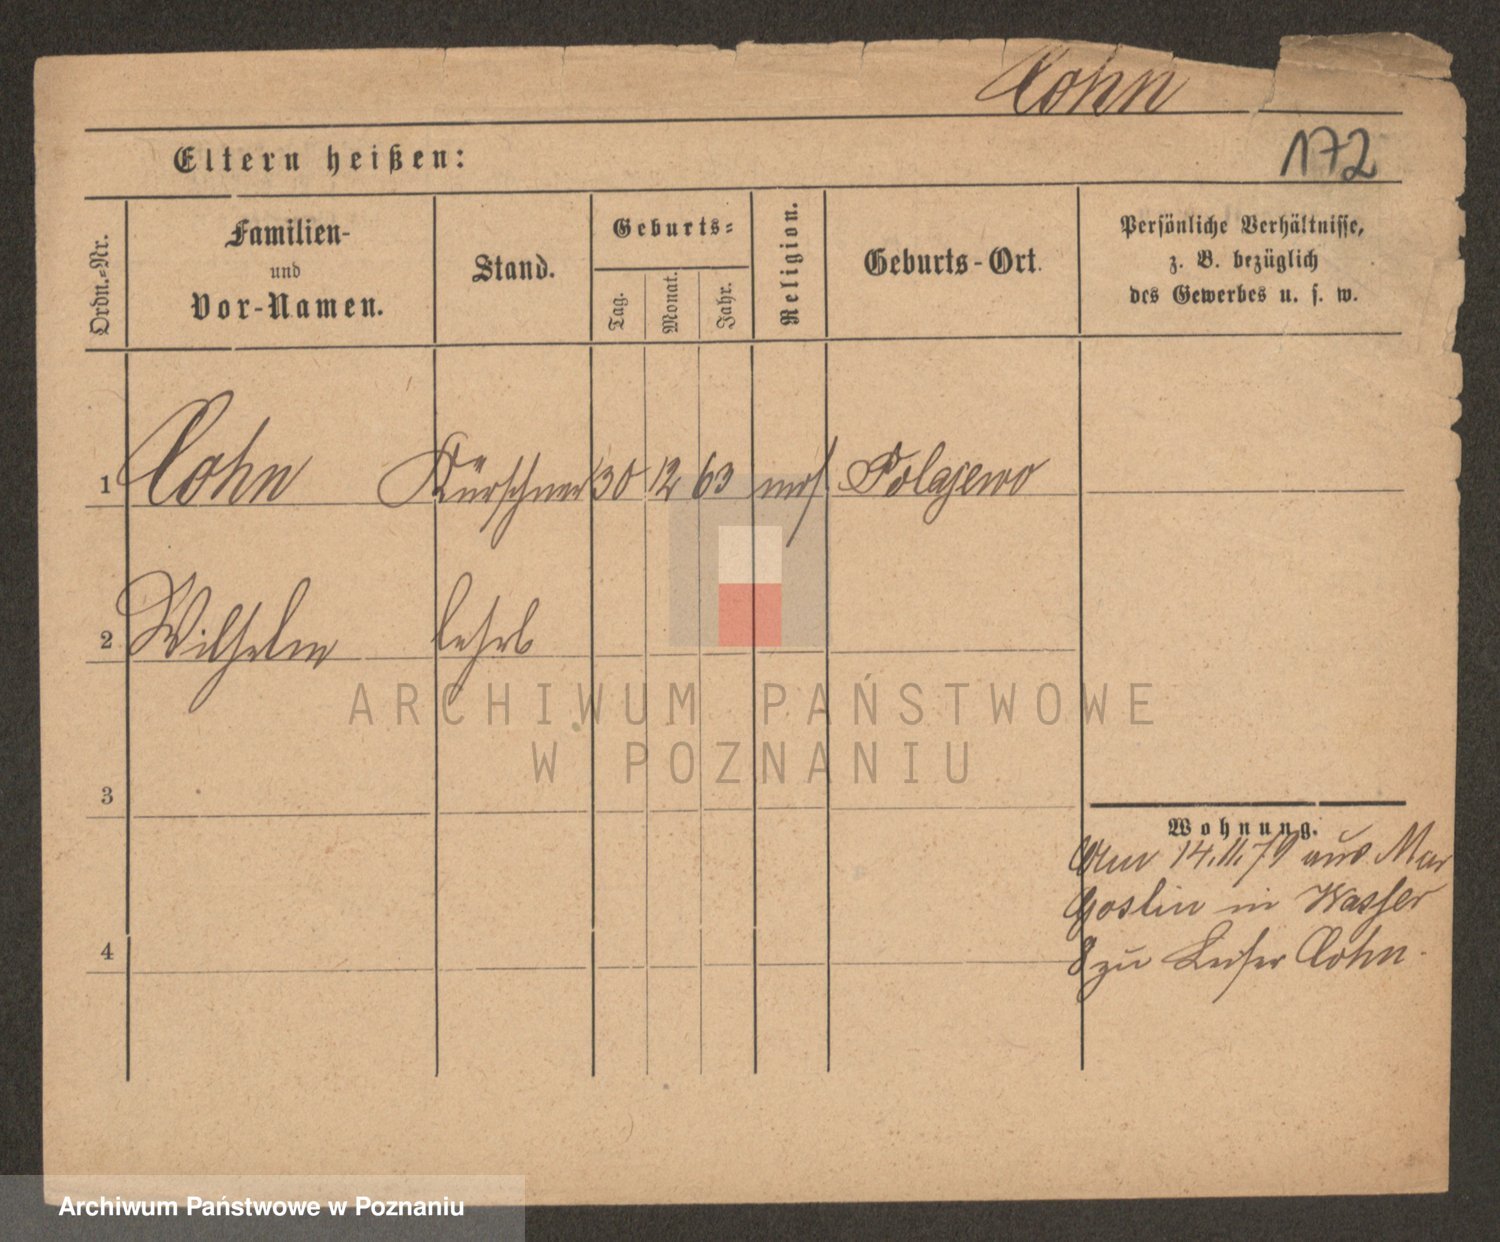 Cohn
172
Eltern heißen:
Ordn.-Nr.
Familien-
und
Vor-Namen.
Stand.
Geburts-
Tag.
Monat.
Jahr.
Religion.
Geburts-Ort.
Persönliche Verhältnisse,
z. B. bezüglich
des Gewerbes u. s. w.
1 Cohn Kürschner 30 12 63 mos Polajewo
2 Wilhelm lehrl
3
4
Wohnung.
Am 14.11.79 aus Mur
Goslin in Wasser
8 zu Leiser Cohn.
ARCHIWUM PAŃSTWOWE
W POZNANIU
Archiwum Państwowe w Poznaniu